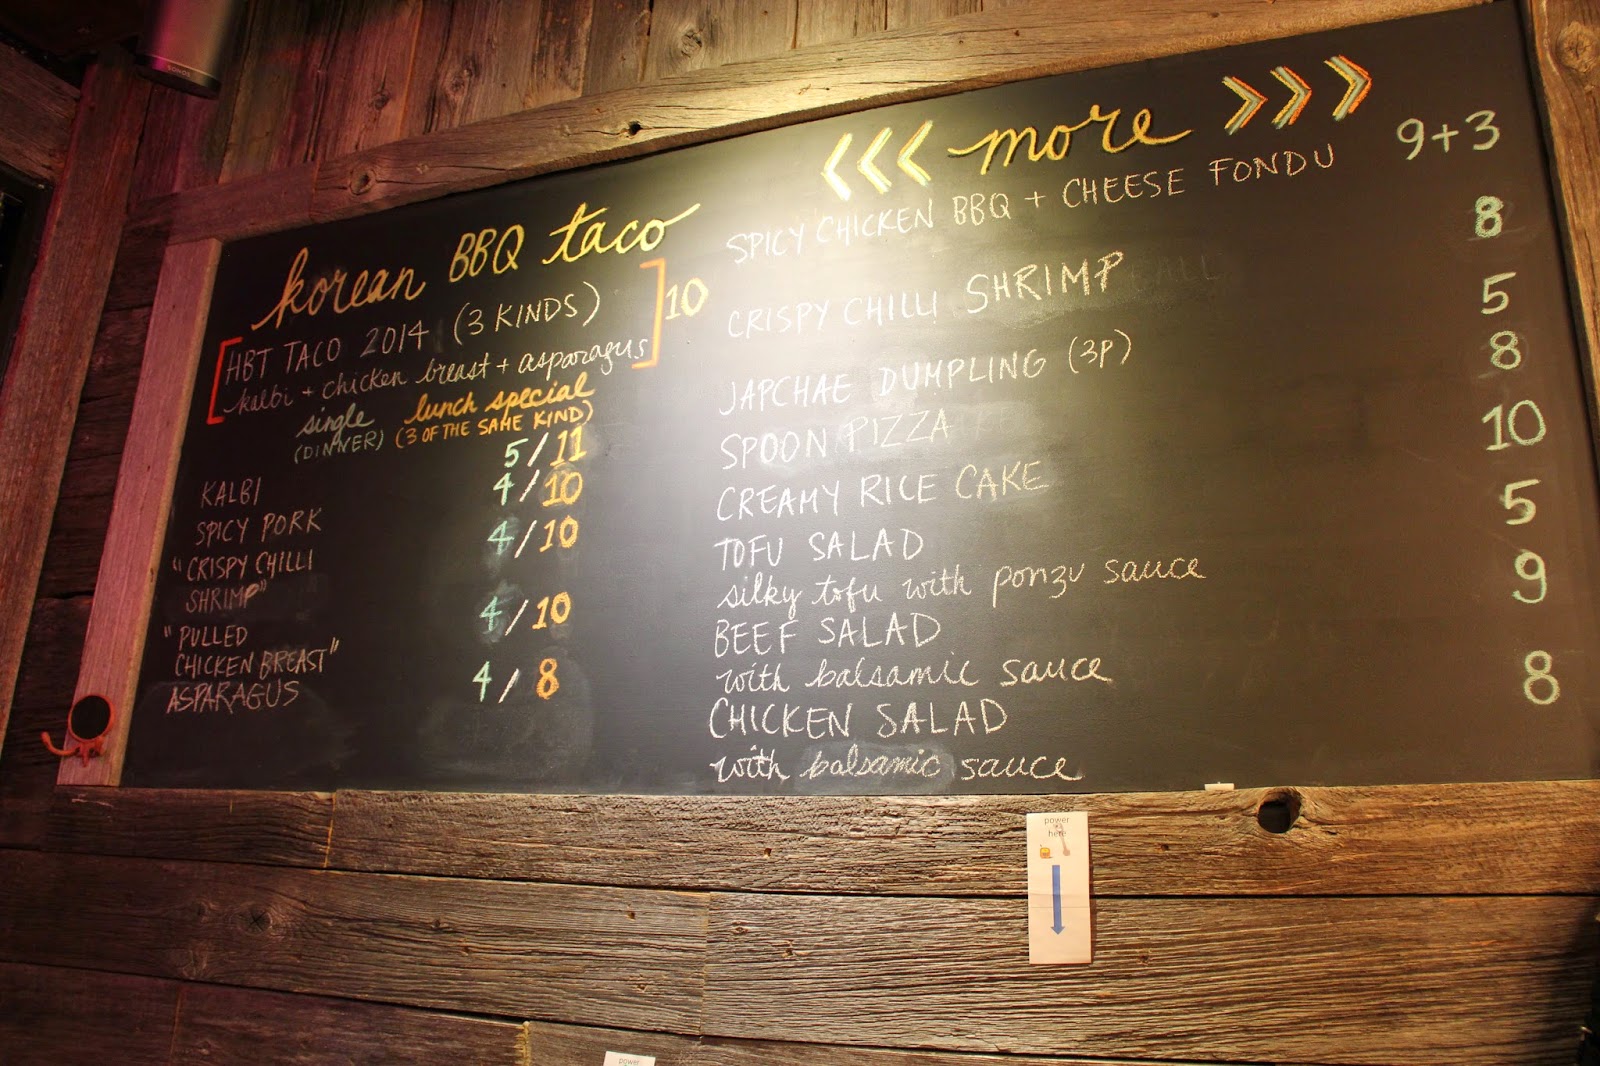 SONOS
korean BBQ taco
HBT TACO 2014 (3 KINDS)
kalbi + chicken breast + asparagus
10
single lunch special
(DINNER) (3 OF THE SAME KIND)
KALBI 5/11
SPICY PORK 4/10
"CRISPY CHILLI
SHRIMP" 4/10
"PULLED
CHICKEN BREAST" 4/10
ASPARAGUS 4/8
<<< more >>>
SPICY CHICKEN BBQ + CHEESE FONDU 9+3
CRISPY CHILLI SHRIMP 8
JAPCHAE DUMPLING (3P) 5
SPOON PIZZA 8
CREAMY RICE CAKE 10
TOFU SALAD 5
silky tofu with ponzu sauce
BEEF SALAD 9
with balsamic sauce
CHICKEN SALAD 8
with balsamic sauce
power
here
power